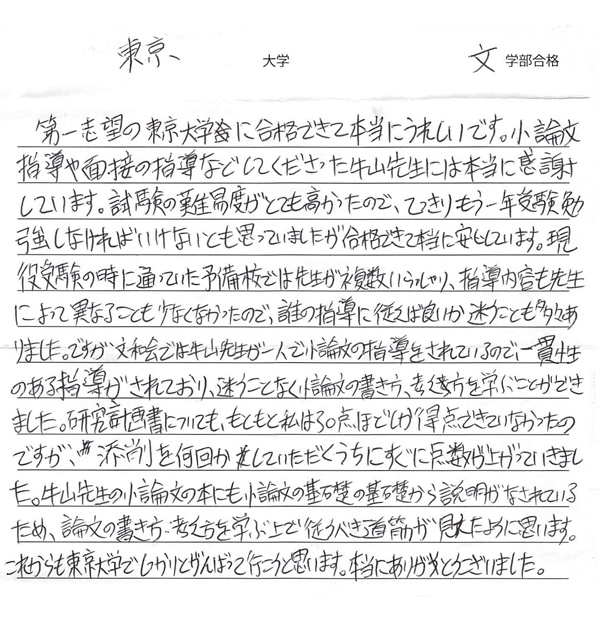 東京、 大学 文 学部合格
第一志望の東京大学に合格できて本当にうれしいです。小論文
指導や面接の指導などしてくださった牛山先生には本当に感謝
しています。試験の難易度がとても高かったので、てっきりもう一年受験勉
強しなければいけないとも思っていましたが合格できて本当に安心しています。現
役受験の時に通っていた予備校では先生が複数いらっしゃり、指導内容も先生
によって異なることも少なくなかったので、誰の指導に従えば良いか迷うことも多々あ
りました。ですが文和会では牛山先生が一人で小論文の指導をされているので、一貫性
のある指導がされており、迷うことなく小論文の書き方、考え方を学ぶことができ
ました。研究計画書についても、もともと私は30点ほどしか得点できていなかったの
ですが、添削を何回かしていただくうちにすぐに点数が上がっていきまし
た。牛山先生の小論文の本にも小論文の基礎の基礎から説明がなされている
ため、論文の書き方・考え方を学ぶ上で従うべき道筋が見えたように思います。
これからも東京大学でしっかりとがんばって行こうと思います。本当にありがとうございました。